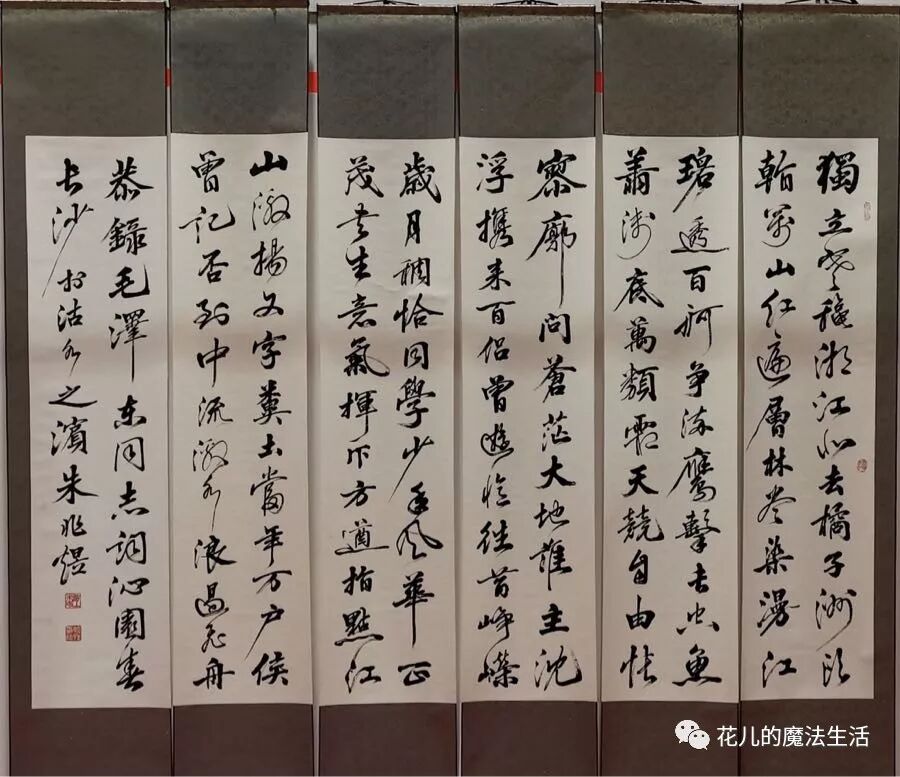 獨立寒穐湘江北去橘子洲頭
看萬山紅遍層林盡染漫江
碧透百舸争流鷹擊長空魚
翔淺底萬類霜天競自由悵
寥廓問蒼茫大地誰主沈
浮携来百侣曾遊憶往昔崢嶸
歲月稠恰同學少年風華正
茂書生意氣揮斥方遒指點江
山激揚文字糞土當年万户侯
曾記否到中流激水浪遏飛舟
恭録毛澤東同志詞沁園春
長沙於沽水之濱朱兆
花儿的魔法生活